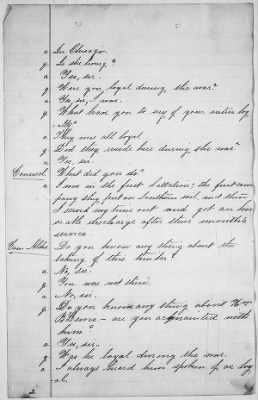 a In Chicago.
q Is she living?
a Yes, sir.
q Were you loyal during the war?
a Yes, sir, I was.
q What have you to say of your sisters loy
alty?
a They were all loyal.
q Did they reside here during the war?
a Yes, sir.
Counsel. What did you do?
a I was in the first battalion; the first com
pany they put on Southern soil, and then
I served my time out and got an hon
orable discharge after three months
service.
Do you know any thing about the
taking of this timber?
a No, sir.
q You was not there.
a No, sir.
q Do you know any thing about Wm
B. — are you acquainted with
him?
a Yes, sir.
q Was he loyal during the war.
a I always heard him spoken of as loy
al.